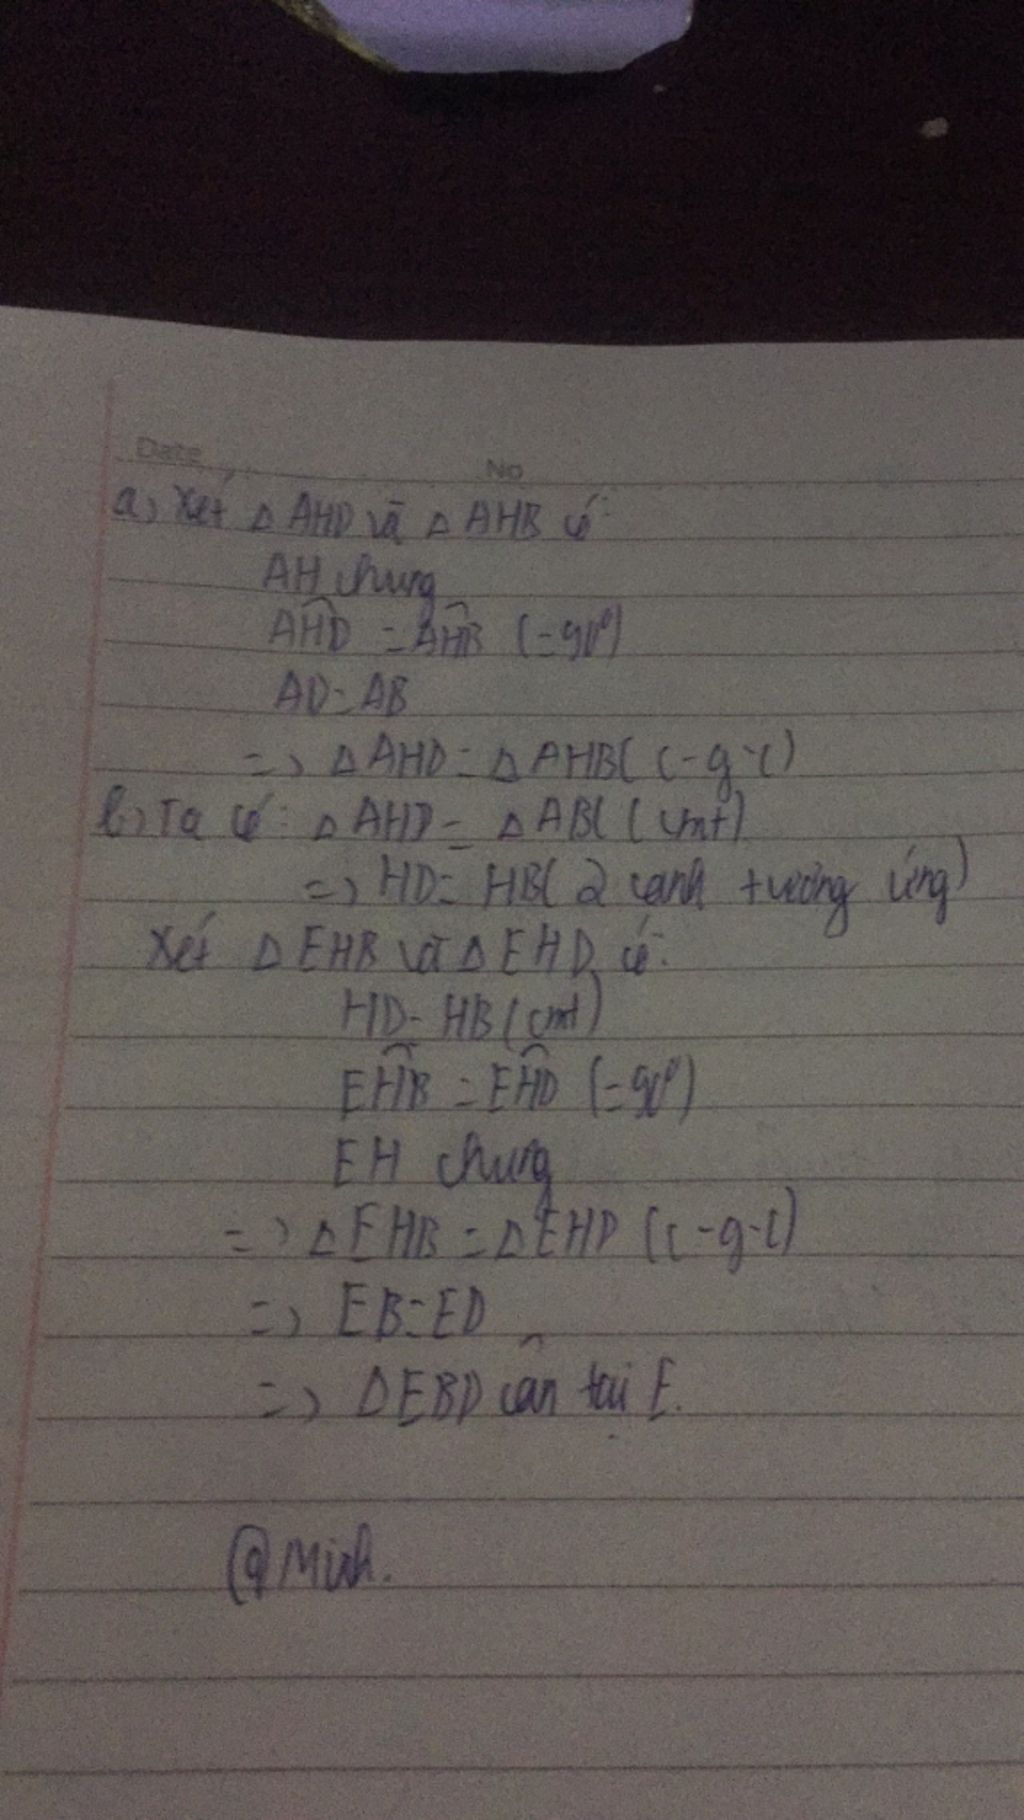 Date No
a) Xét △ AHD và △ AHB có:
AH chung
AHD = AHB (=90°)
AD = AB
=> △ AHD = △ AHB (c-g-c)
b) Ta có: △ AHD = △ ABC (cmt)
=> HD = HB (2 cạnh tương ứng)
Xét △ EHB và △ EHD có:
HD = HB (cmt)
EHB = EHD (=90°)
EH chung
=> △ EHB = △ EHD (c-g-c)
=> EB = ED
=> △EBD cân tại E.
@Minh.